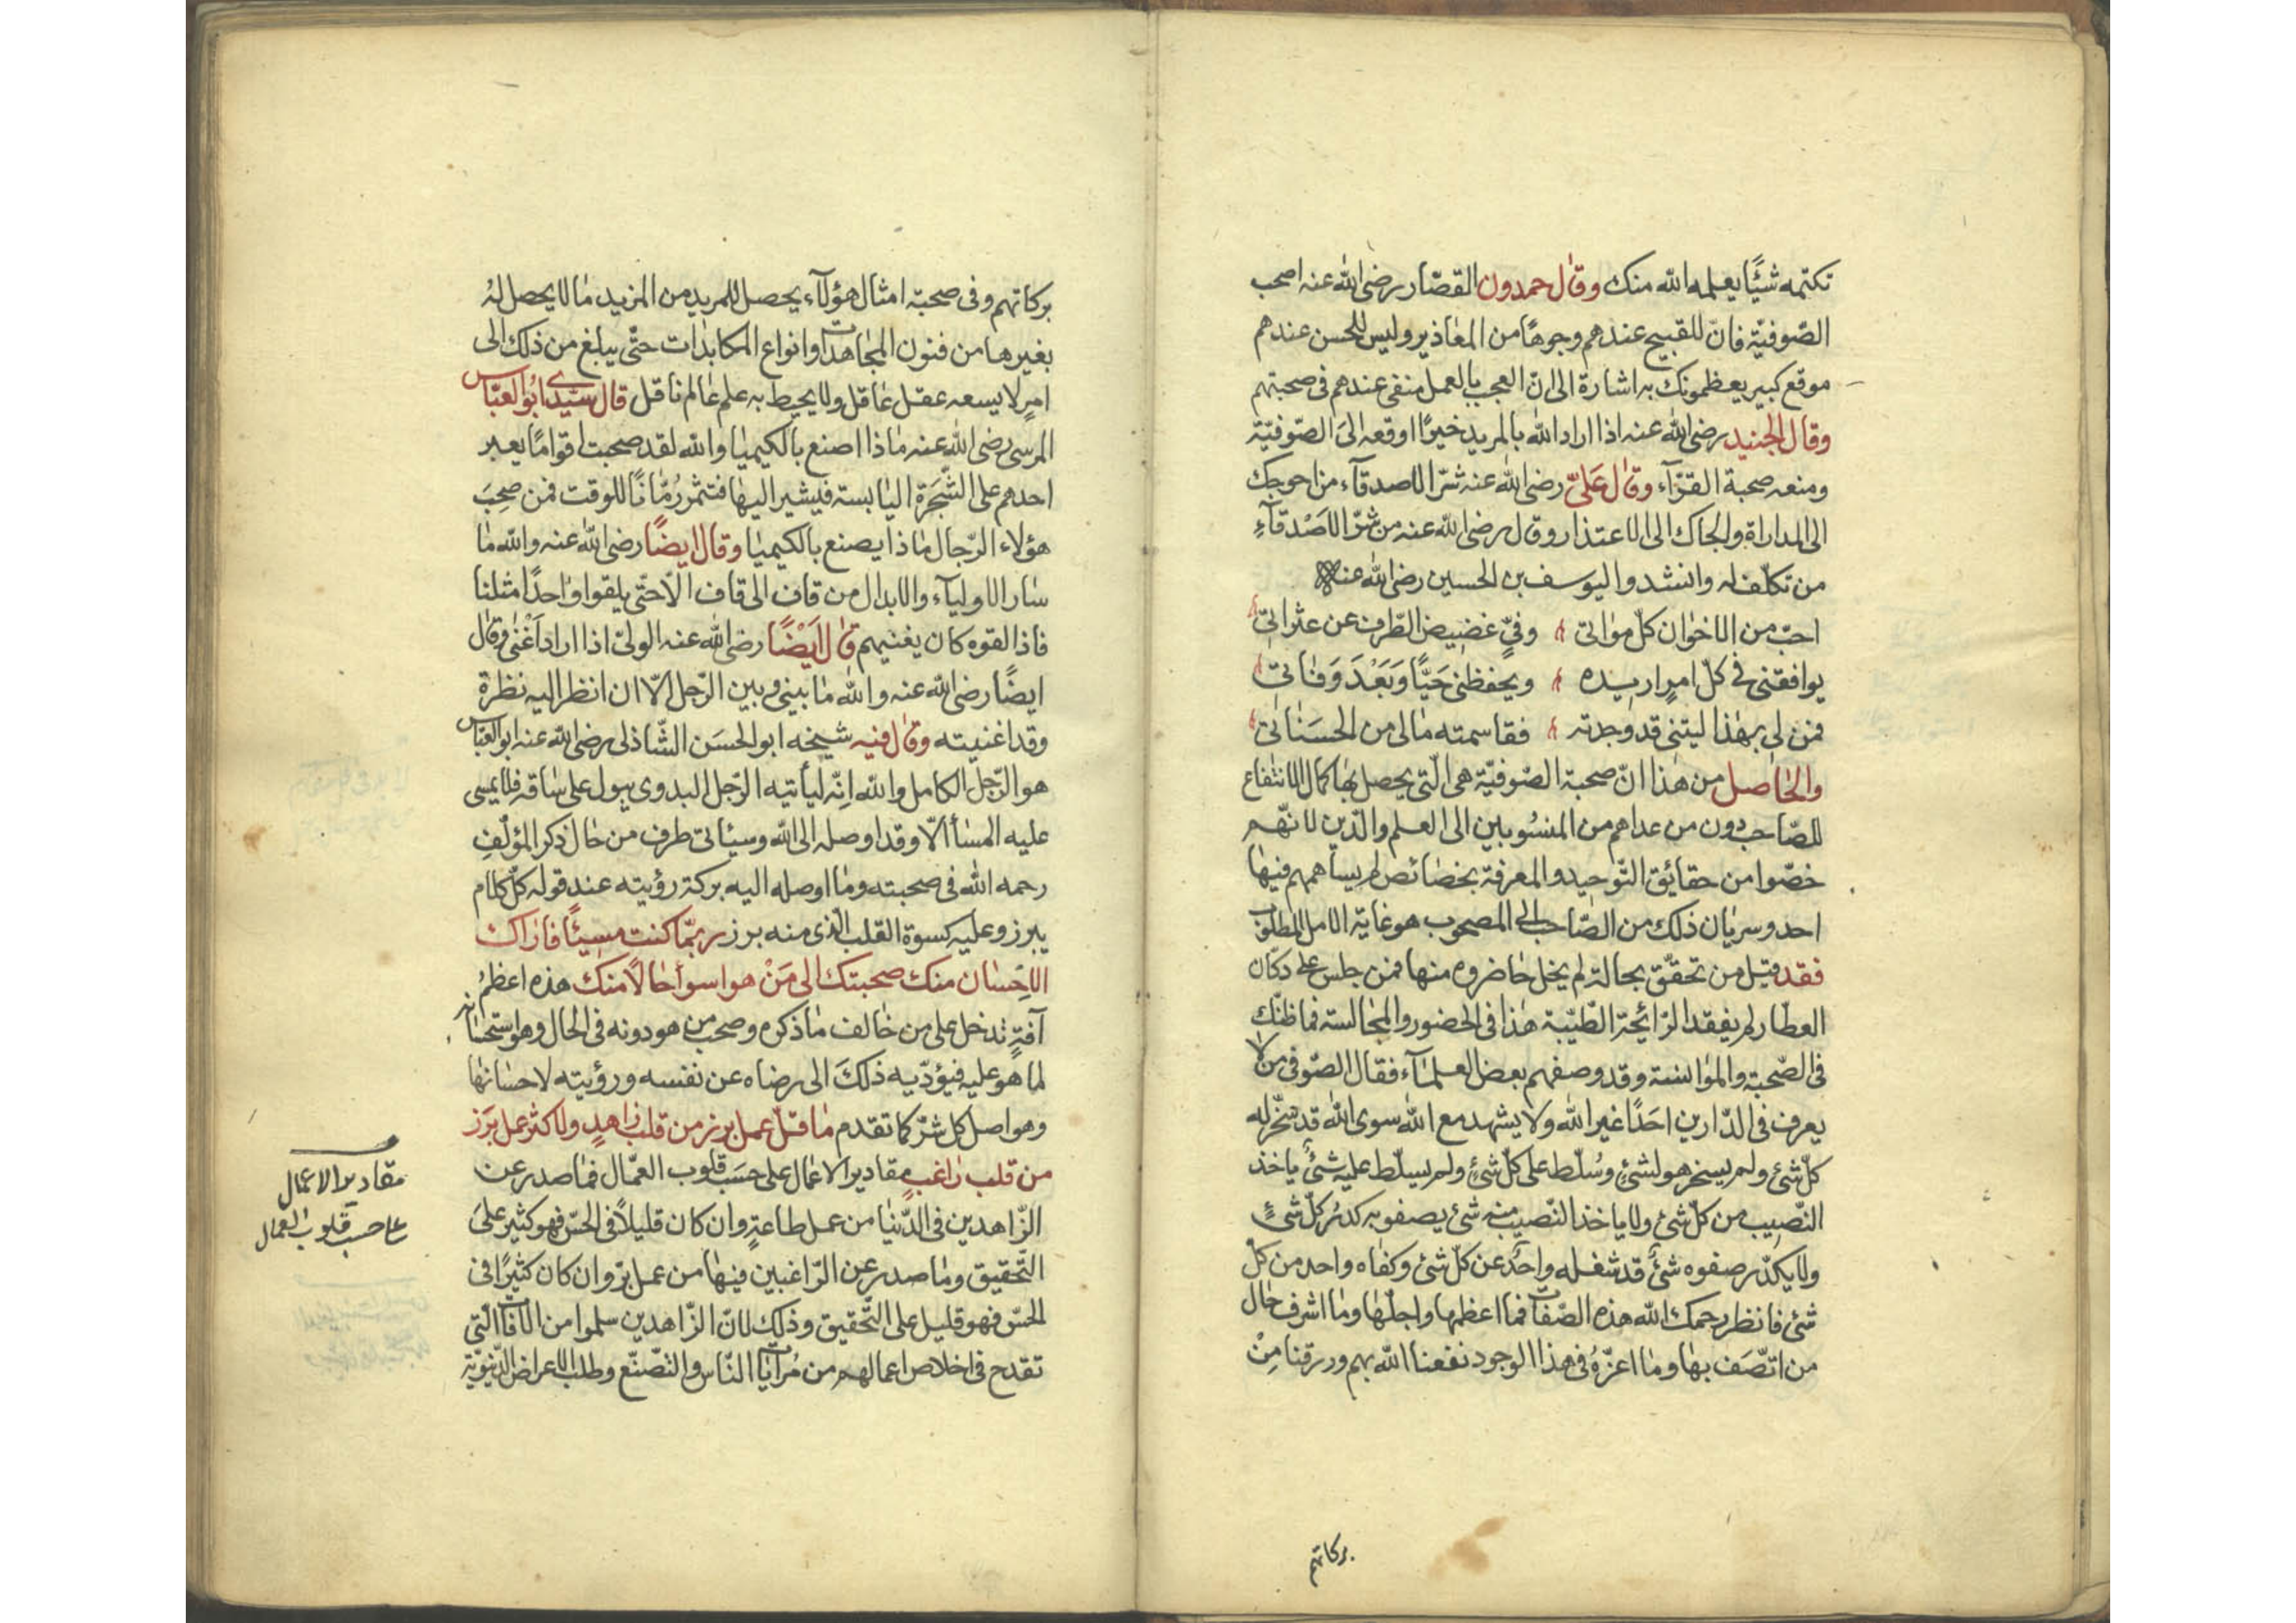 تكتمه شيئًا يعلمه الله منك وقال حمدون القصّار رضى الله عنه اصحب
الصّوفيّة فانّ للقبيح عندهم وجوهًا من المعاذير وليس للحسن عندهم
موقع كبير يعظمونك به اشارة الى انّ العجب بالعمل منفى عندهم فى صحبتهم
وقال الجنيد رضى الله عنه اذا اراد الله بالمريد خيرًا اوقعه الى الصّوفيّة
ومنعه صحبة القرّآء وقال علىّ رضى الله عنه شرّ الاصدقآء من احوجك
الى المداراة والجاك الى الاعتذار وقال رضى الله عنه من شرّ الاصدقآءِ
من تكلّف له وانشدوا ليوسف بن الحسين رضى الله عنه
احبّ من الاخوان كلّ مواتى وفىّ غضيض الطّرف عن عثراتى
يوافقنى فى كلّ امرٍ اريده ويحفظنى حيًّا وبَعْدَ وَفاتى
فمن لى بهذا ليتنى قد وجدته فقاسمته مالى من الحسَنات
والحاصل من هذا انّ صحبة الصّوفيّة هى الّتى يحصل بها كمال الانتفاع
للصّاحب دون من عداهم من المنسُوبين الى العلم والدّين لانّهم
خصّوا من حقايق التّوحيد والمعرفة بخصائص لم يساهمهم فيها
احد وسريان ذلك من الصّاحب الى المصحوب هو غاية الامل والمطلوب
فقد قيل من تحقّق بحالة لم يخل حاضروه منها فمن جلس على دكّان
العطّار لم يفقد الرّائحة الطّيّبة هذا فى الحضور والمجالسة فما ظنّك
فى الصّحبة والموانسة وقد وصفهم بعض العلمآء فقال الصّوفى من لا
يعرف فى الدّارين احَدًا غير الله ولا يشهد مع الله سوى الله قد سخّر له
كلّ شئ ولم يسخر هو لشئٍ وسُلّط على كلّ شئٍ ولم يسلّط عليه شئٌ ياخذ
النّصيب من كلّ شئ ولا ياخذ النّصيب منه شئ يصفو به كدرُ كلّ شئٍ
ولا يكدّر صفوه شئٌ قد شغله واحدٌ عن كلّ شئ وكفاه واحد من كلّ
شئ فانظر رحمك الله هذه الصّفات فما اعظمها واجلّها وما اشرف حال
من اتّصَف بها وما اعزّهُ فى هذا الوجود نفعنا الله بهم ورزقنا مِنْ
بركاتهم
بركاتهم وفى صحبة امثال هؤلآء يحصل للمريد من المزيد ما لا يحصل لهُ
بغيرها من فنون المجاهدات وانواع المكابدات حتّى يبلغ من ذلك الى
امرٍ لا يسعه عقل عاقل ولا يحيط به علم عالم ناقل قال سيّدى ابُو العبّاس
المرسى رضى الله عنه ماذا اصنع بالكيميا والله لقد صحبت اقوامًا يعبر
احدهم على الشّجَرة اليابسة فيشير اليها فتثمر رُمّانًا للوقت فمن صحِبَ
هؤلاء الرّجال ماذا يصنع بالكيميا وقال ايضًا رضى الله عنه والله ما
سار الاوليآء والابدال من قاف الى قاف الّا حتّى يلقوا واحدًا مثلنا
فاذا لقوه كان يغنيهم قال اَيْضًا رضى الله عنه الولىّ اذا اراد اَغْنى وقال
ايضًا رضى الله عنه والله ما بينى وبين الرّجل الّا ان انظر اليه نظرة
وقد اغنيته وقال فيه شيخه ابو الحسَن الشّاذلى رضى الله عنه ابو العبّاس
هو الرّجل الكامل والله اِنّه ليأتيه الرّجل البدوى يبول على ساقه فلا يمسى
عليه المسأ الّا وقد اوصله الى الله وسيأتى طرف من حال ذكر المؤلّف
رحمه الله فى صحبته وما اوصله اليه بركة رؤيته عند قوله كلّ كلام
يبرز وعليه كسوة القلب الّذى منه برز ربّما كنت مسيئًا فاراك
الاحْسان منك صحبتك الى مَنْ هو اسوأ حالًا منك هذه اعظمُ
آفةٍ تدخل على من خالف ما ذكره وصحب من هو دونه فى الحال وهو استحسانه
لما هو عليه فيؤدّيه ذلكَ الى رضاه عن نفسه ورؤيته لاحسانها
وهو اصل كل شرّ كما تقدم ما قلّ عمل برز من قلب زاهدٍ ولا كثر عمل بَرَز
من قلب راغبٍ مقادير الاعمال على حسَب قلوب العمّال فما صدر عن
الزّاهدين فى الدّنيا من عمل طاعةٍ وان كان قليلاً فى الحسّ فهو كثير على
التّحقيق وما صدر عن الرّاغبين فيها من عمل برّ وان كان كثيرًا فى
الحسّ فهو قليل على التّحقيق وذلك لانّ الزّاهدين سلموا من الآفات الّتى
تقدح فى اخلاص اعمالهم من مُراياة النّاس والتّصنّع وطلب الاعراض الدّنيويّة
مقادير الاعمال
على حسب قلوب العمال